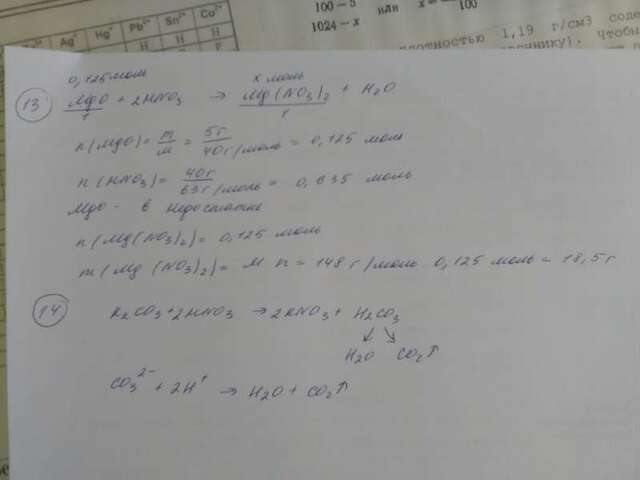 Ag⁺ Hg²⁺ Pb²⁺ Sn²⁺ Cu²⁺
100 - 5
1024 - x или x = 100
плотностью 1,19 г/см3 соде
Чтобы
0,125 моль x моль
13 MgO + 2HNO₃ → Mg(NO₃)₂ + H₂O
1 1
n(MgO) = m/M = 5г/40г/моль = 0,125 моль
n(HNO₃) = 40г/63г/моль = 0,635 моль
MgO - в недостатке
n(Mg(NO₃)₂) = 0,125 моль
m(Mg(NO₃)₂) = M n = 148 г/моль 0,125 моль = 18,5 г
14 K₂CO₃ + 2HNO₃ → 2KNO₃ + H₂CO₃
↙ ↘
H₂O CO₂↑
CO₃²⁻ + 2H⁺ → H₂O + CO₂↑